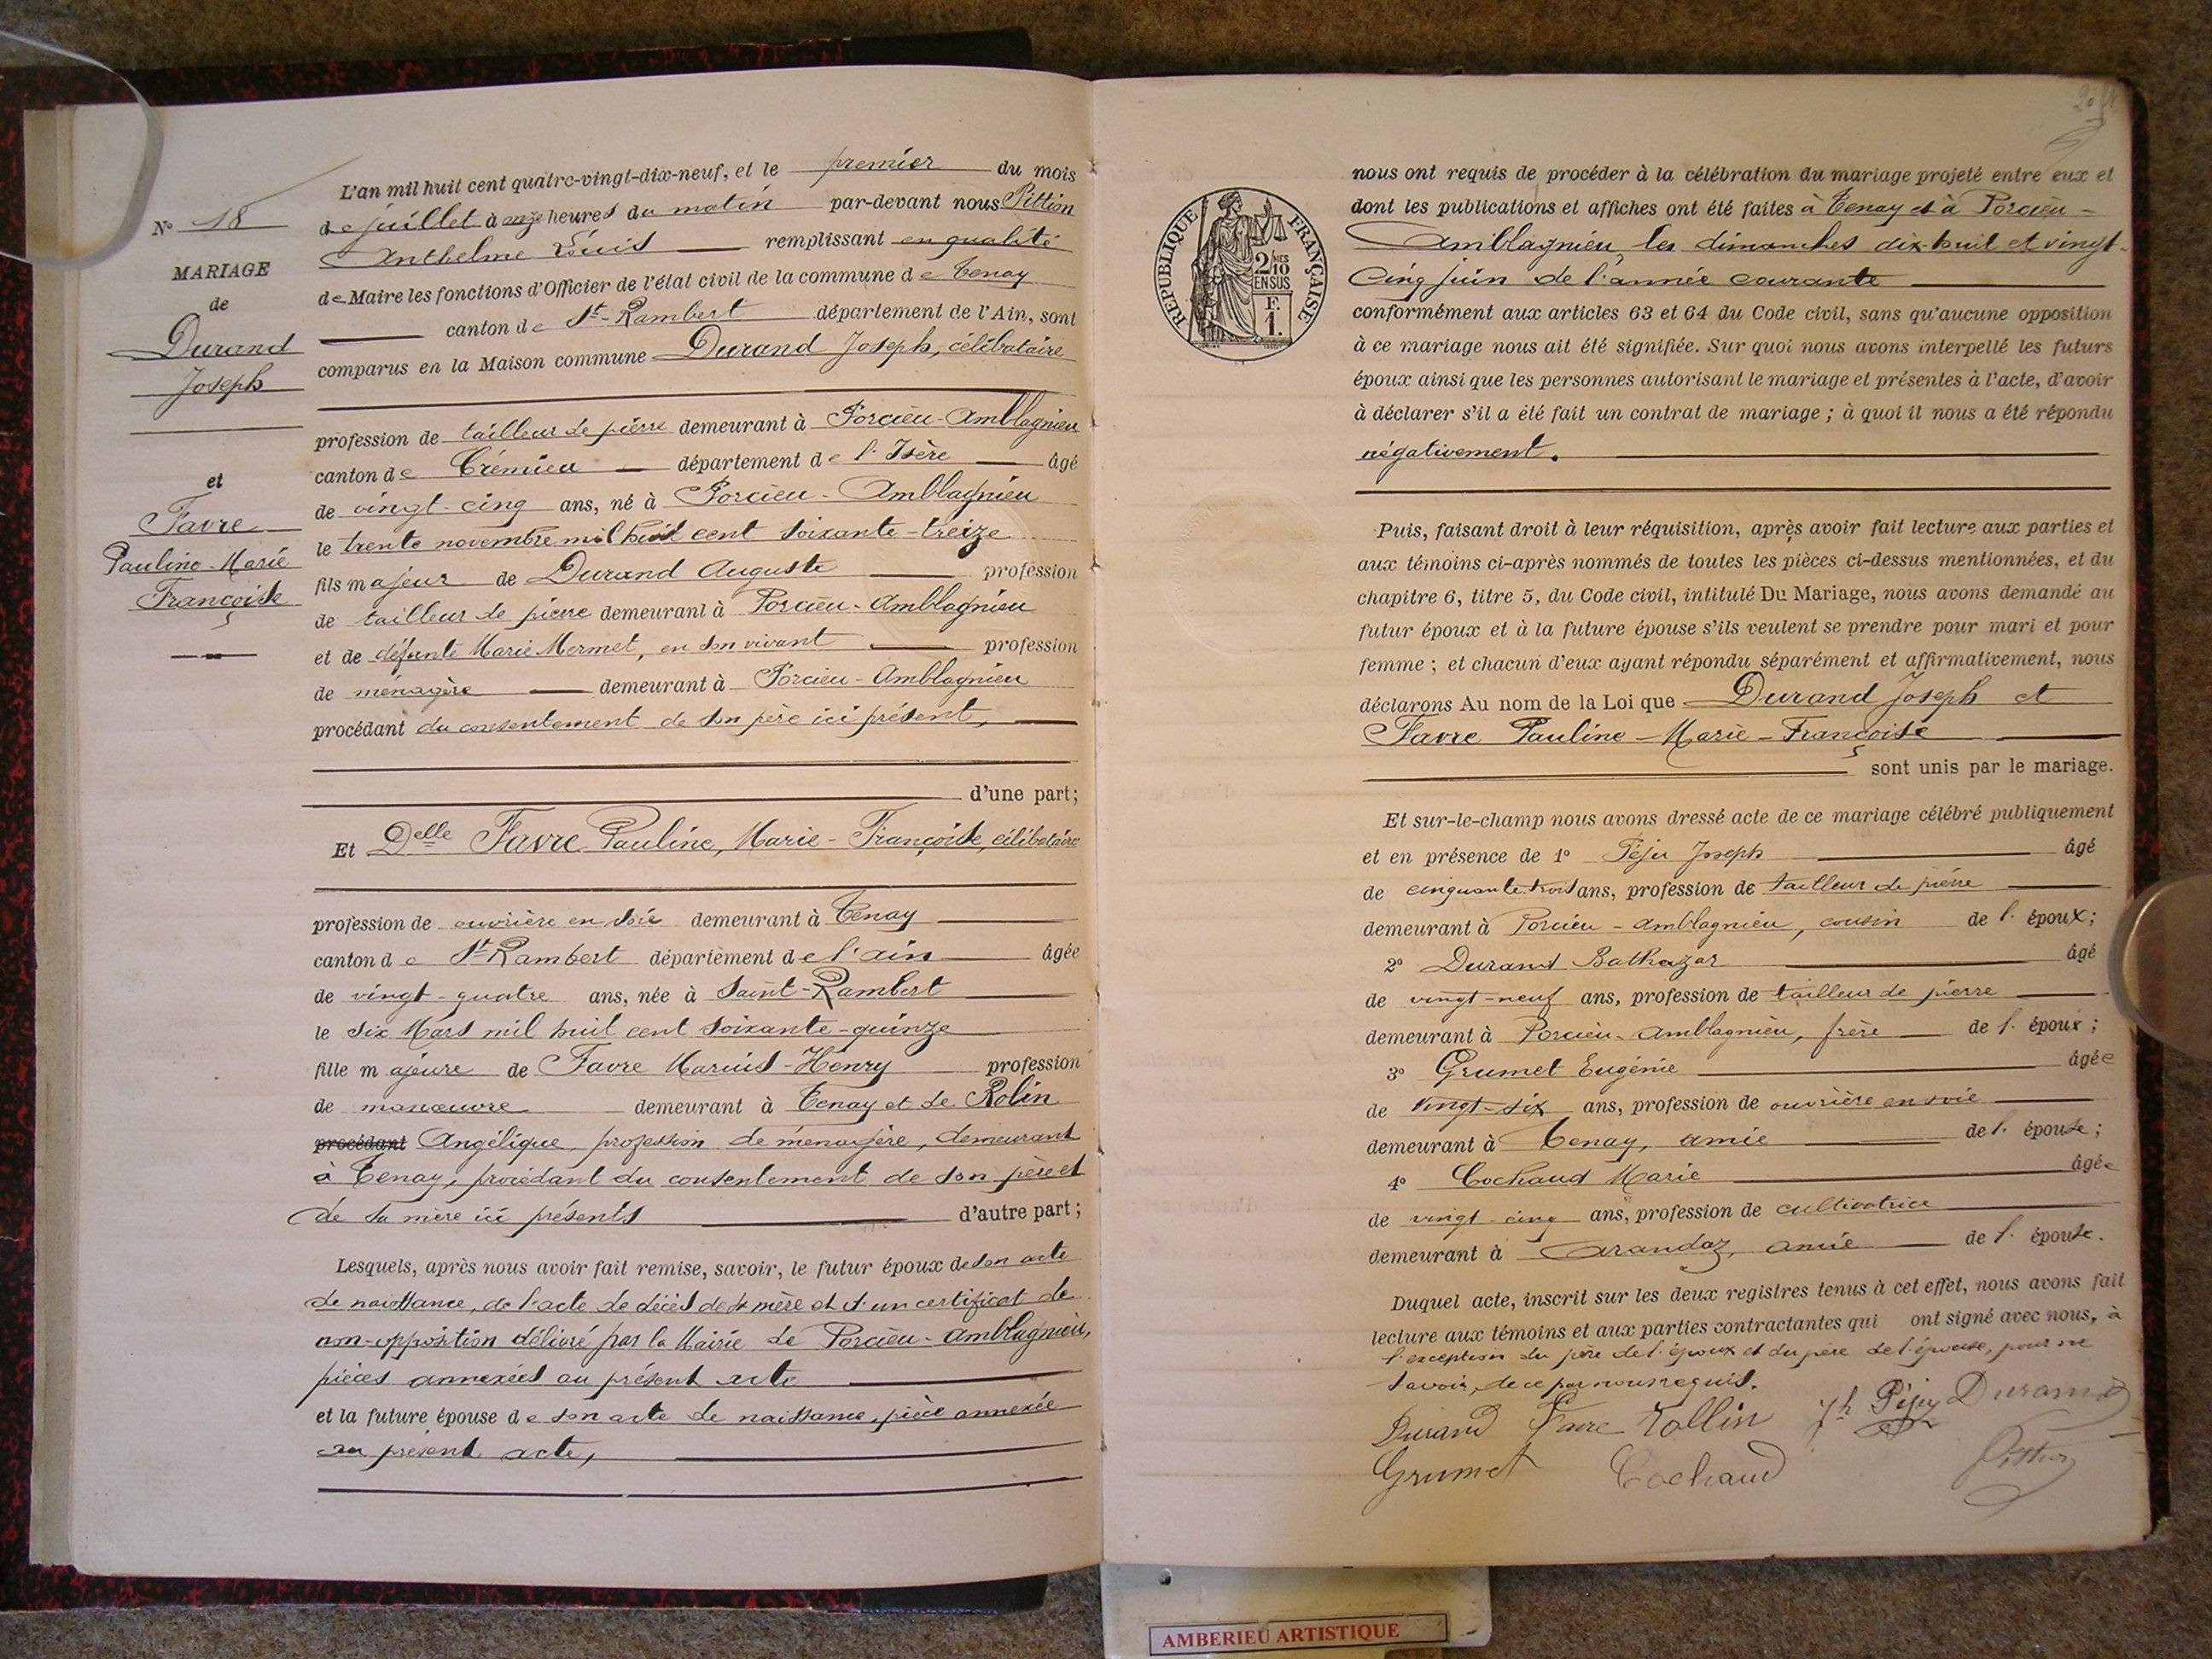 N° 18
MARIAGE
de
Durand
Joseph
et
Favre
Pauline-Marie
Françoise
L'an mil huit cent quatre-vingt-dix-neuf, et le premier du mois
de juillet à onze heures du matin par-devant nous Pittion
Anthelme Louis remplissant en qualité
de Maire les fonctions d'Officier de l'état civil de la commune de Tenay
canton de St-Rambert département de l'Ain, sont
comparus en la Maison commune Durand Joseph, célibataire
profession de tailleur de pierre demeurant à Porcieu-Amblagnieu
canton de Crémieu département de l'Isère âgé
de vingt-cinq ans, né à Porcieu-Amblagnieu
le trente novembre mil huit cent soixante-treize
fils majeur de Durand Auguste profession
de tailleur de pierre demeurant à Porcieu-Amblagnieu
et de défunte Marie Mermet, en son vivant profession
de ménagère demeurant à Porcieu-Amblagnieu
procédant du consentement de son père ici présent,
d'une part;
Et Delle Favre Pauline, Marie-Françoise, célibataire
profession de ouvrière en soie demeurant à Tenay
canton de St Rambert département de l'ain âgée
de vingt-quatre ans, née à Saint-Rambert
le six Mars mil huit cent soixante-quinze
fille majeure de Favre Marius-Henry profession
de manœuvre demeurant à Tenay et de Rolin
procédant Angélique, profession de ménagère, demeurant
à Tenay, procédant du consentement de son père et
de sa mère ici présents d'autre part;
Lesquels, après nous avoir fait remise, savoir, le futur époux de son acte
de naissance, de l'acte de décès de sa mère et d'un certificat de
non-opposition délivré par la Mairie de Porcieu-Amblagnieu,
pièces annexées au présent acte
et la future épouse de son acte de naissance, pièce annexée
au présent acte,
RÉPUBLIQUE FRANÇAISE
2/10 MES
EN SUS
F.
1.
nous ont requis de procéder à la célébration du mariage projeté entre eux et
dont les publications et affiches ont été faites à Tenay et à Porcieu-
Amblagnieu, les dimanches dix-huit et vingt-
cinq juin de l'année courante
conformément aux articles 63 et 64 du Code civil, sans qu'aucune opposition
à ce mariage nous ait été signifiée. Sur quoi nous avons interpellé les futurs
époux ainsi que les personnes autorisant le mariage et présentes à l'acte, d'avoir
à déclarer s'il a été fait un contrat de mariage; à quoi il nous a été répondu
négativement.
Puis, faisant droit à leur réquisition, après avoir fait lecture aux parties et
aux témoins ci-après nommés de toutes les pièces ci-dessus mentionnées, et du
chapitre 6, titre 5, du Code civil, intitulé Du Mariage, nous avons demandé au
futur époux et à la future épouse s'ils veulent se prendre pour mari et pour
femme; et chacun d'eux ayant répondu séparément et affirmativement, nous
déclarons Au nom de la Loi que Durand Joseph et
Favre Pauline-Marie-Françoise
sont unis par le mariage.
Et sur-le-champ nous avons dressé acte de ce mariage célébré publiquement
et en présence de 1° Péju Joseph âgé
de cinquante-trois ans, profession de tailleur de pierre
demeurant à Porcieu-amblagnieu, cousin de l'époux;
2° Durand Balthazar âgé
de vingt-neuf ans, profession de tailleur de pierre
demeurant à Porcieu-Amblagnieu, frère de l'époux;
3° Grumet Eugénie âgée
de vingt-six ans, profession de ouvrière en soie
demeurant à Tenay, amie de l'épouse;
4° Cochaud Marie âgée
de vingt-cinq ans, profession de cultivatrice
demeurant à Arandaz, amie de l'épouse.
Duquel acte, inscrit sur les deux registres tenus à cet effet, nous avons fait
lecture aux témoins et aux parties contractantes qui ont signé avec nous, à
l'exception du père de l'époux et du père de l'épouse, pour ne
savoir, de ce par nous requis.
Durand Favre Rollin Jh Péju Durand
Grumet Cochaud Pittion
AMBERIEU ARTISTIQUE